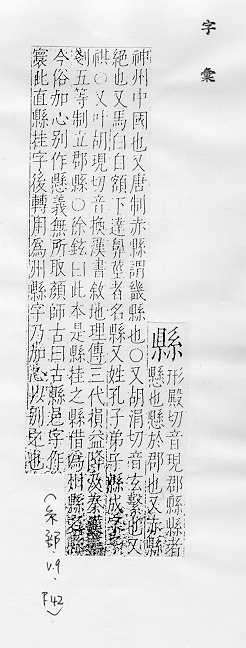 字彙
縣 形殿切音現郡縣縣者
懸也懸於郡也又赤縣
神州中國也又唐制赤縣謂畿縣也○又胡涓切音玄繫也又
絕也又馬白白額下達鼻莖者名縣又姓孔子弟子縣成字子
祺○又叶胡現切音換漢書敘地理傳三代損益降及秦漢革
剗五等制立郡縣○徐鉉曰此本是縣挂之縣借為州縣之縣
今俗加心別作懸義無所取顏師古曰古縣邑字作
寰此直縣挂字後轉用為州縣字乃加心以別之也
(糸部 v.9 P.42)